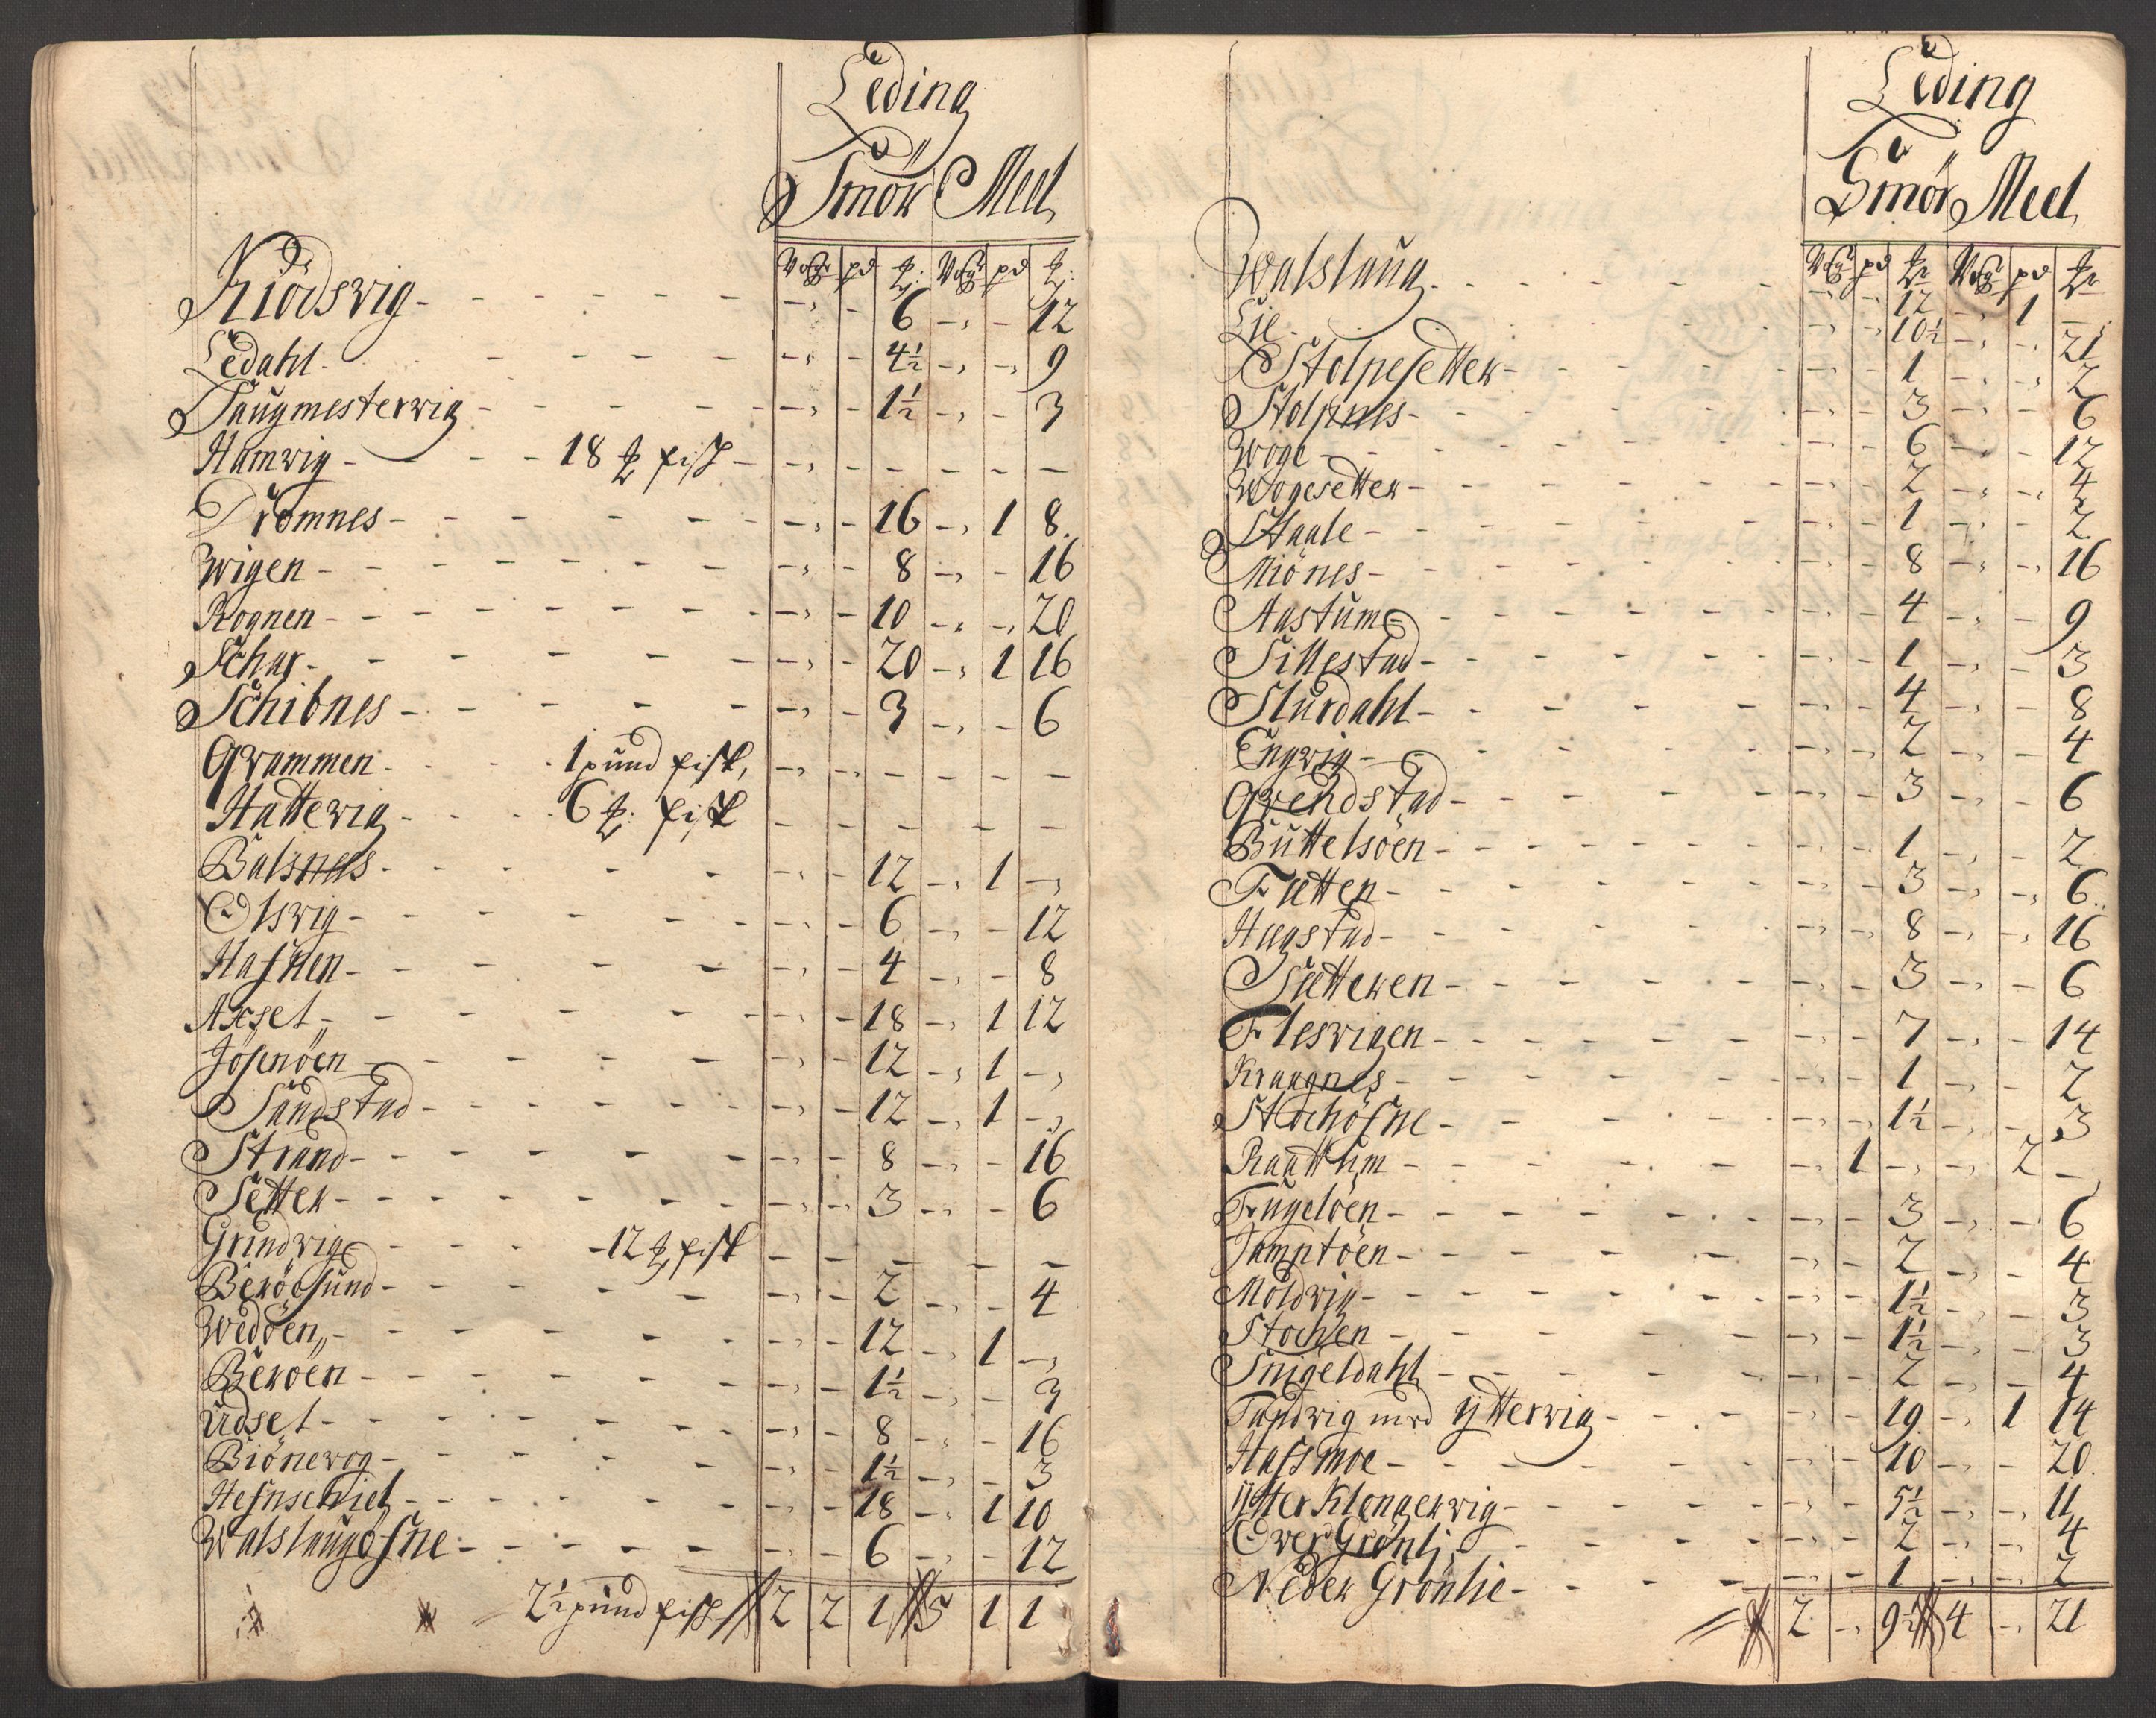 Leding
Smör Meel
Vog pd ℔: Vog pd ℔:
Kiödsvig - - - - - - 6 - - 12
Ledahl - - - - - - 4½ - - 9
Saugmestervig - - - - - - 1½ - - 3
Hamvig - - - 18 ℔ fisk - - - - - - -
Drömnes - - - - - - 16 - 1 8
Wigen - - - - - - 8 - - 16
Rognen - - - - - - 10 - - 20
Schar - - - - - - 20 - 1 16
Schibnes - - - - - - 3 - - 6
Qvammen - - - 1 pund fisk, - - - - - -
Hattevig - - - 6 ℔: fisk - - - - - -
Balsnes - - - - - - 12 - 1 -
Olsvig - - - - - - 6 - - 12
Hafnen - - - - - - 4 - - 8
Axset - - - - - - 18 - 1 12
Jösenöen - - - - - - 12 - 1 -
Sandstad - - - - - - 12 - 1 -
Strand - - - - - - 8 - - 16
Setter - - - - - - 3 - - 6
Grindvig - - - 12 ℔ fisk - - - - - -
Beröesund - - - - - - 2 - - 4
Wedöen - - - - - - 12 - 1 -
Beröen - - - - - - 1½ - - 3
Udset - - - - - - 8 - - 16
Biönevog - - - - - - 1½ - - 3
Hefnschiel - - - - - - 18 - 1 10
Walslaugöfne - - - - - - 6 - - 12
2½ pund fisk // 2 2 1 // 5 1 1
Leding
Smör Meel
Vog pd ℔ Vog pd ℔
Walslaug - - - - - - 12 - 1 -
Lie - - - - - - 10½ - - 21
Stolpesetter - - - - - - 1 - - 2
Stolpnes - - - - - - 3 - - 6
Woge - - - - - - 6 - - 12
Wogesetter - - - - - - 2 - - 4
Staale - - - - - - 1 - - 2
Miönes - - - - - - 8 - - 16
Aastum - - - - - - 4 - - 9
Sillestad - - - - - - 1 - - 3
Slurdahl - - - - - - 4 - - 8
Engvig - - - - - - 2 - - 4
Qvendstad - - - - - - 3 - - 6
Büttelsöen - - - - - - 1 - - 2
Fætten - - - - - - 3 - - 6
Hægstad - - - - - - 8 - - 16
Sætteren - - - - - - 3 - - 6
Flesvigen - - - - - - 7 - - 14
Kraagnes - - - - - - 1 - - 2
Stochöfne - - - - - - 1½ - - 3
Raattum - - - - - 1 - - 2 -
Fugelöen - - - - - - 3 - - 6
Jamptöen - - - - - - 2 - - 4
Moldvig - - - - - - 1½ - - 3
Stochen - - - - - - 1½ - - 3
Snigeldahl - - - - - - 2 - - 4
Tandvig med yttervig - - - - 19 - 1 14
Hafsmoe - - - - - - 10 - - 20
ytter Klongervig - - - - - 5½ - - 11
Over Grönli - - - - - - 2 - - 4
Neder Grönlie - - - - - - 1 - - 2
// 2 - 9½ // 4 - 21